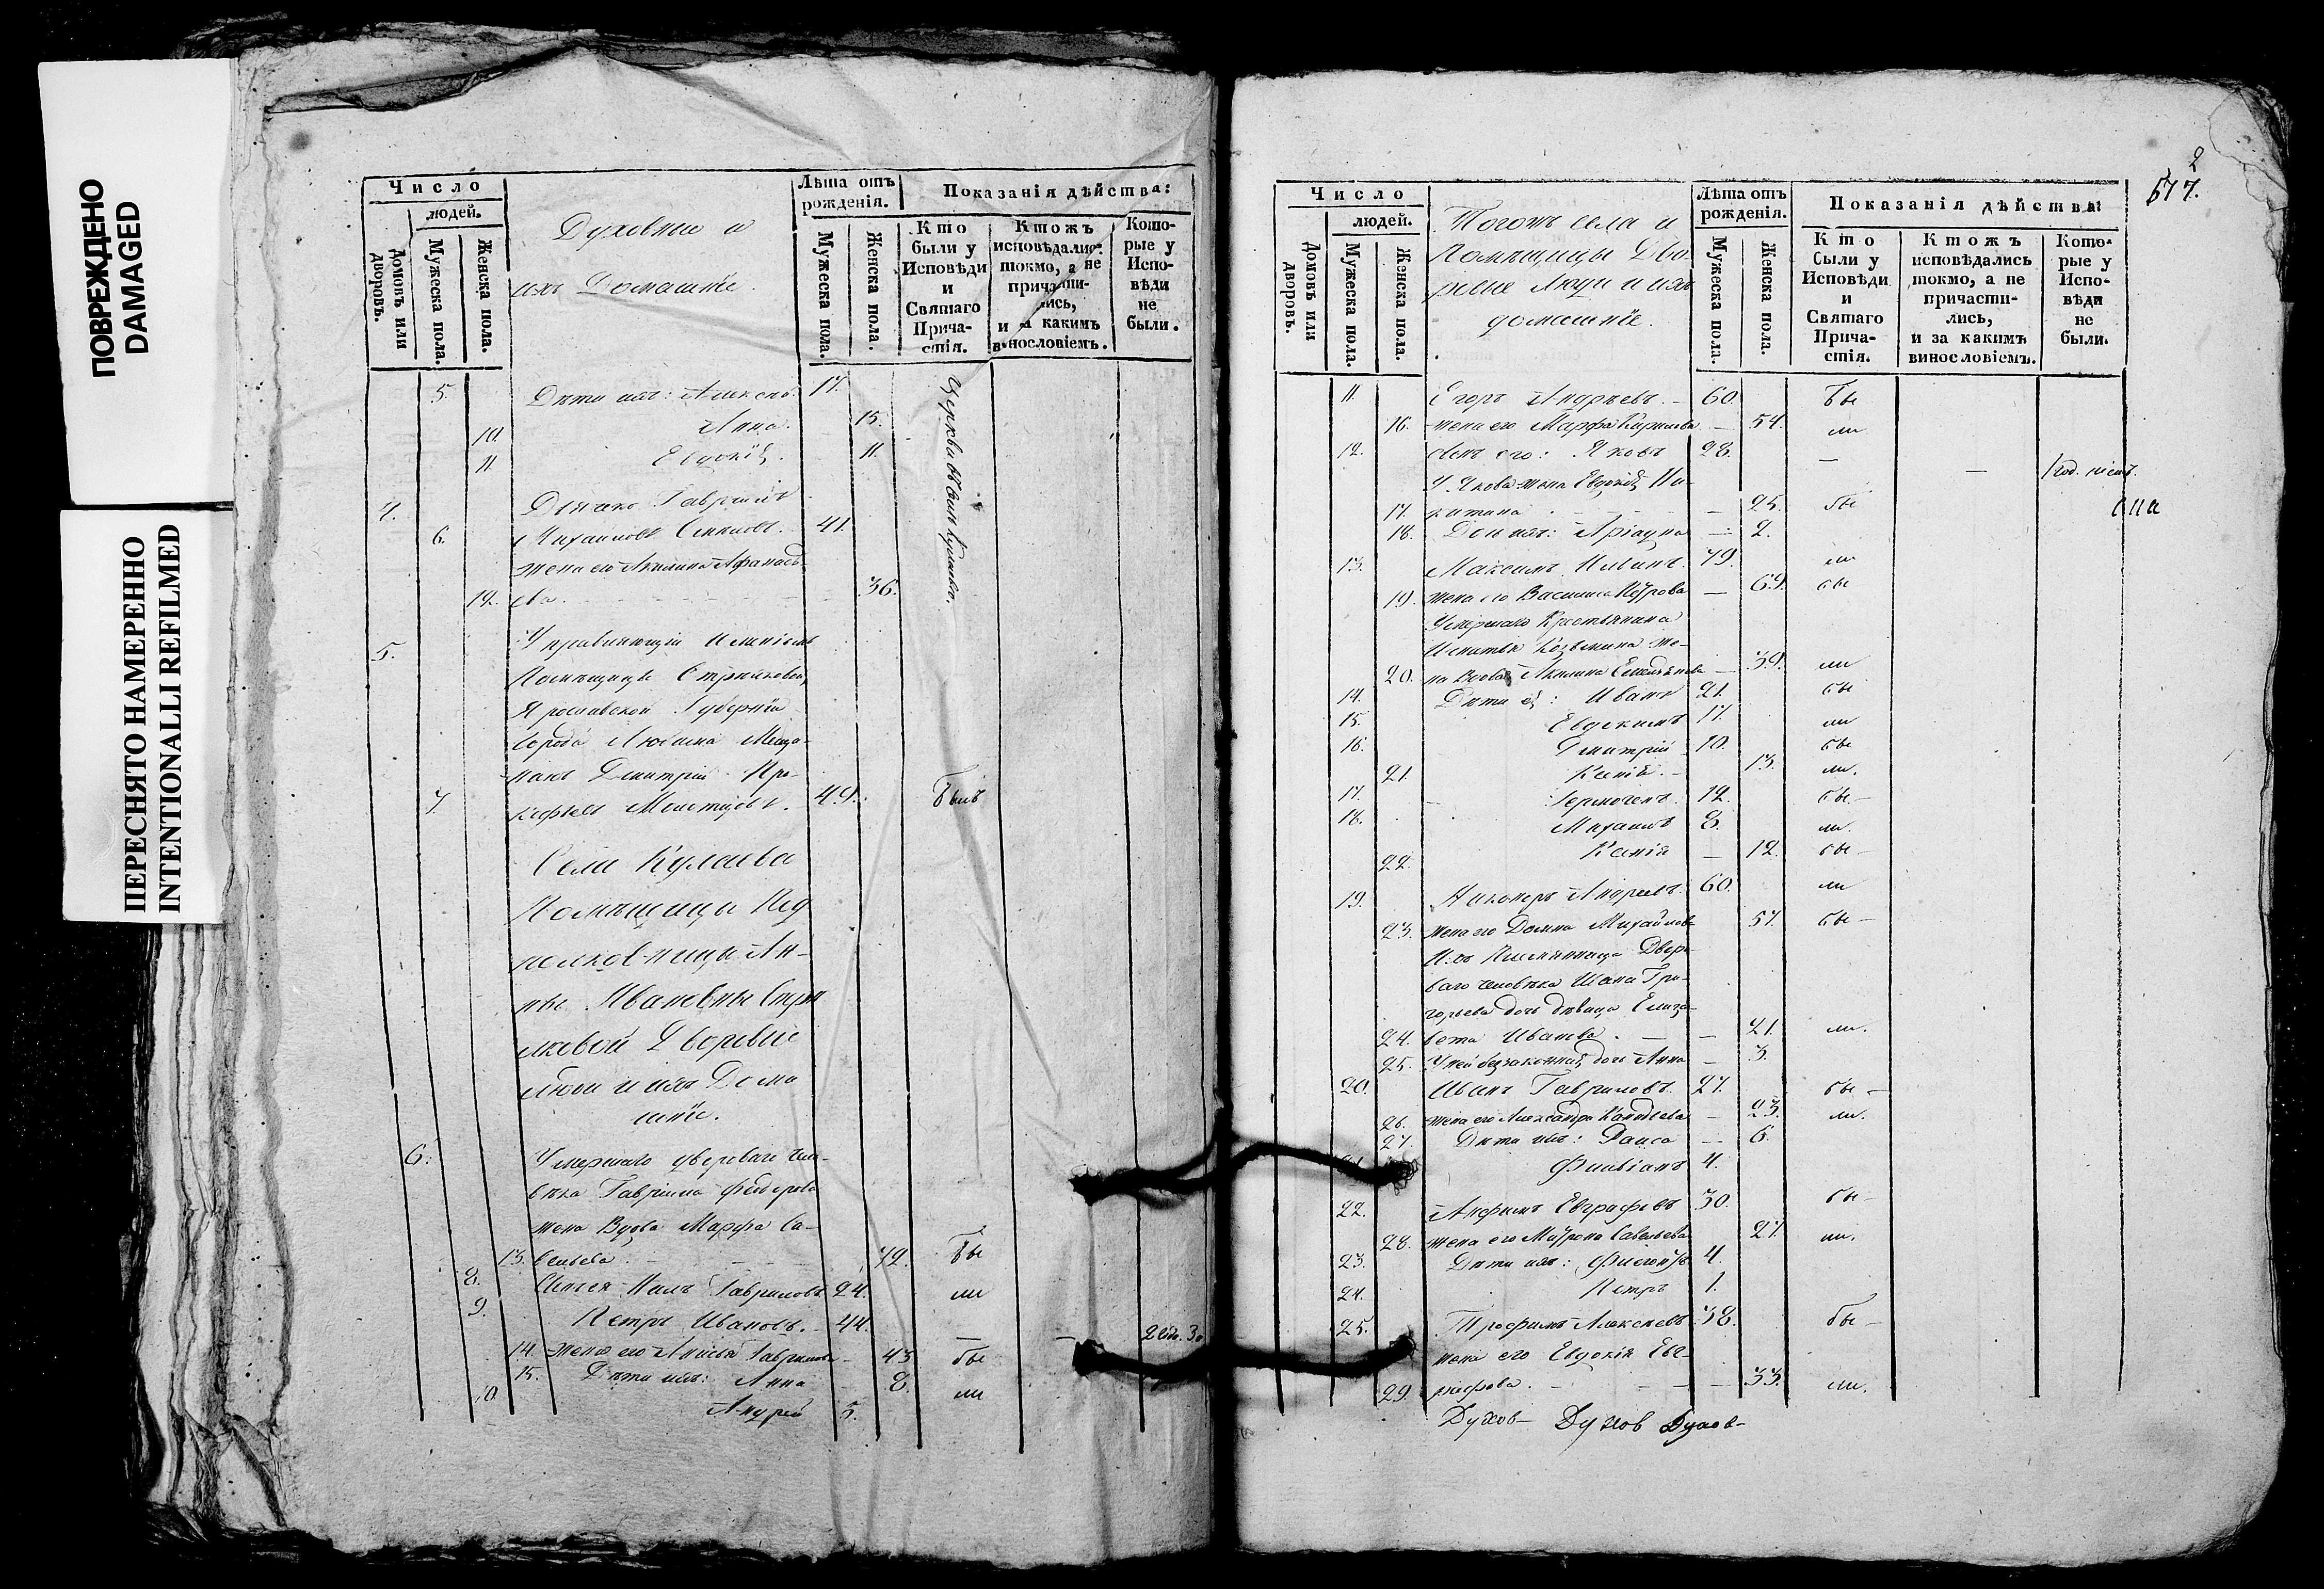 ПОВРЕЖДЕНО
DAMAGED
ПЕРЕСНЯТО НАМЕРЕННО
INTENTIONALLI REFILMED
Число
людей.
Домовъ или дворовъ.
Мужеска пола.
Женска пола.
Духовные и
ихъ Домашніе.
Лѣта отъ рожденія.
Мужеска пола.
Женска пола.
Показанія дѣйства:
Кто были у Исповѣди и Святаго Причастія.
Ктожъ исповѣдались токмо, а не причастились, и за какимъ винословіемъ.
Которые у Исповѣди не были.
5. Дѣти ихъ: Алексѣй. 17.
10. Анна. 15.
11. Евдокія. 11.
4. Дьячекъ Гавріилъ
6. Михаиловъ 41.
жена его Акилина Афанась
12. ева. 36.
5. Управляющій Имѣніемъ
Помѣщицы Стрѣлковой,
Ярославской Губерніи
города Любима Меща-
нинъ Димитрій Про-
7. кофьевъ 49. былъ
Села Кулаева
Помѣщицы Под
полковницы Ан-
ны Ивановны Стрѣ
лковой Дворовые
люди и ихъ Дома
шніе.
6. Умершаго двороваго чело-
вѣка Гавріила Федорова
жена Вдова Марфа Са-
13. вельева 72. бы
8. Гавриловъ 24. ли
9. Петръ Ивановъ. 44. —
14. жена его Анисья Гаврилова 43 бы
15. Дѣти ихъ: Анна 8. ли
10 Андрей 5.
2
577.
Число
людей.
Домовъ или дворовъ.
Мужеска пола.
Женска пола.
Тогожъ села и
Помѣщицы Дво-
ровые люди и ихъ
домашніе.
Лѣта отъ рожденія.
Мужеска пола.
Женска пола.
Показанія дѣйства:
Кто были у Исповѣди и Святаго Причастія.
Ктожъ исповѣдались токмо, а не причастились, и за какимъ винословіемъ.
Которые у Исповѣди не были.
11. Егоръ Андреевъ. — 60. бы
16. жена его Марфа Кирилова — 54. ли
12. сынъ его: Яковъ 28. — —
У Якова жена Евдокія Ни-
17. китина — 25. бы
18. Дочь ихъ: Аріадна — 2.
13. Максимъ 79. ли
19. жена его Василиса Петрова — 69. бы
Умершаго Крестьянина
Игнатья Козьмина же-
20. на Вдова Акилина Емельянова — 39. ли
14. Дѣти ея: Иванъ 21. бы
15. Евдокимъ 17. ли
16. Дмитрій 10. бы
21 Ксенія. 13. ли.
17. Гермогенъ. 12. бы —
18. Михаилъ 8. ли.
22. Ксенія — 12. бы —
19. Никаноръ Андреевъ. 60. ли
23. жена его Домна Михайлов 57. бы —
Ихъ Племянница Дворо-
ваго человѣка Ивана Гри-
горьева дочь дѣвица Елиза-
24. вета Иванова. — 21. ли.
25. У ней беззаконная дочь Анна — 3.
20. Иванъ Гавриловъ. 27. бы —
26. жена его Александра — 23. ли.
27. Дѣти ихъ: Раиса — 6.
21. 4.
22. Анфимъ Евграфовъ 30. бы —
28. жена его Матрона Савельева 27. ли.
23. Дѣти ихъ: 4.
24. Петръ 1.
25. Трофимъ Алексеевъ 38. бы —
жена его Евдокія
29. — 33. ли.
Духов— Духов Духов—